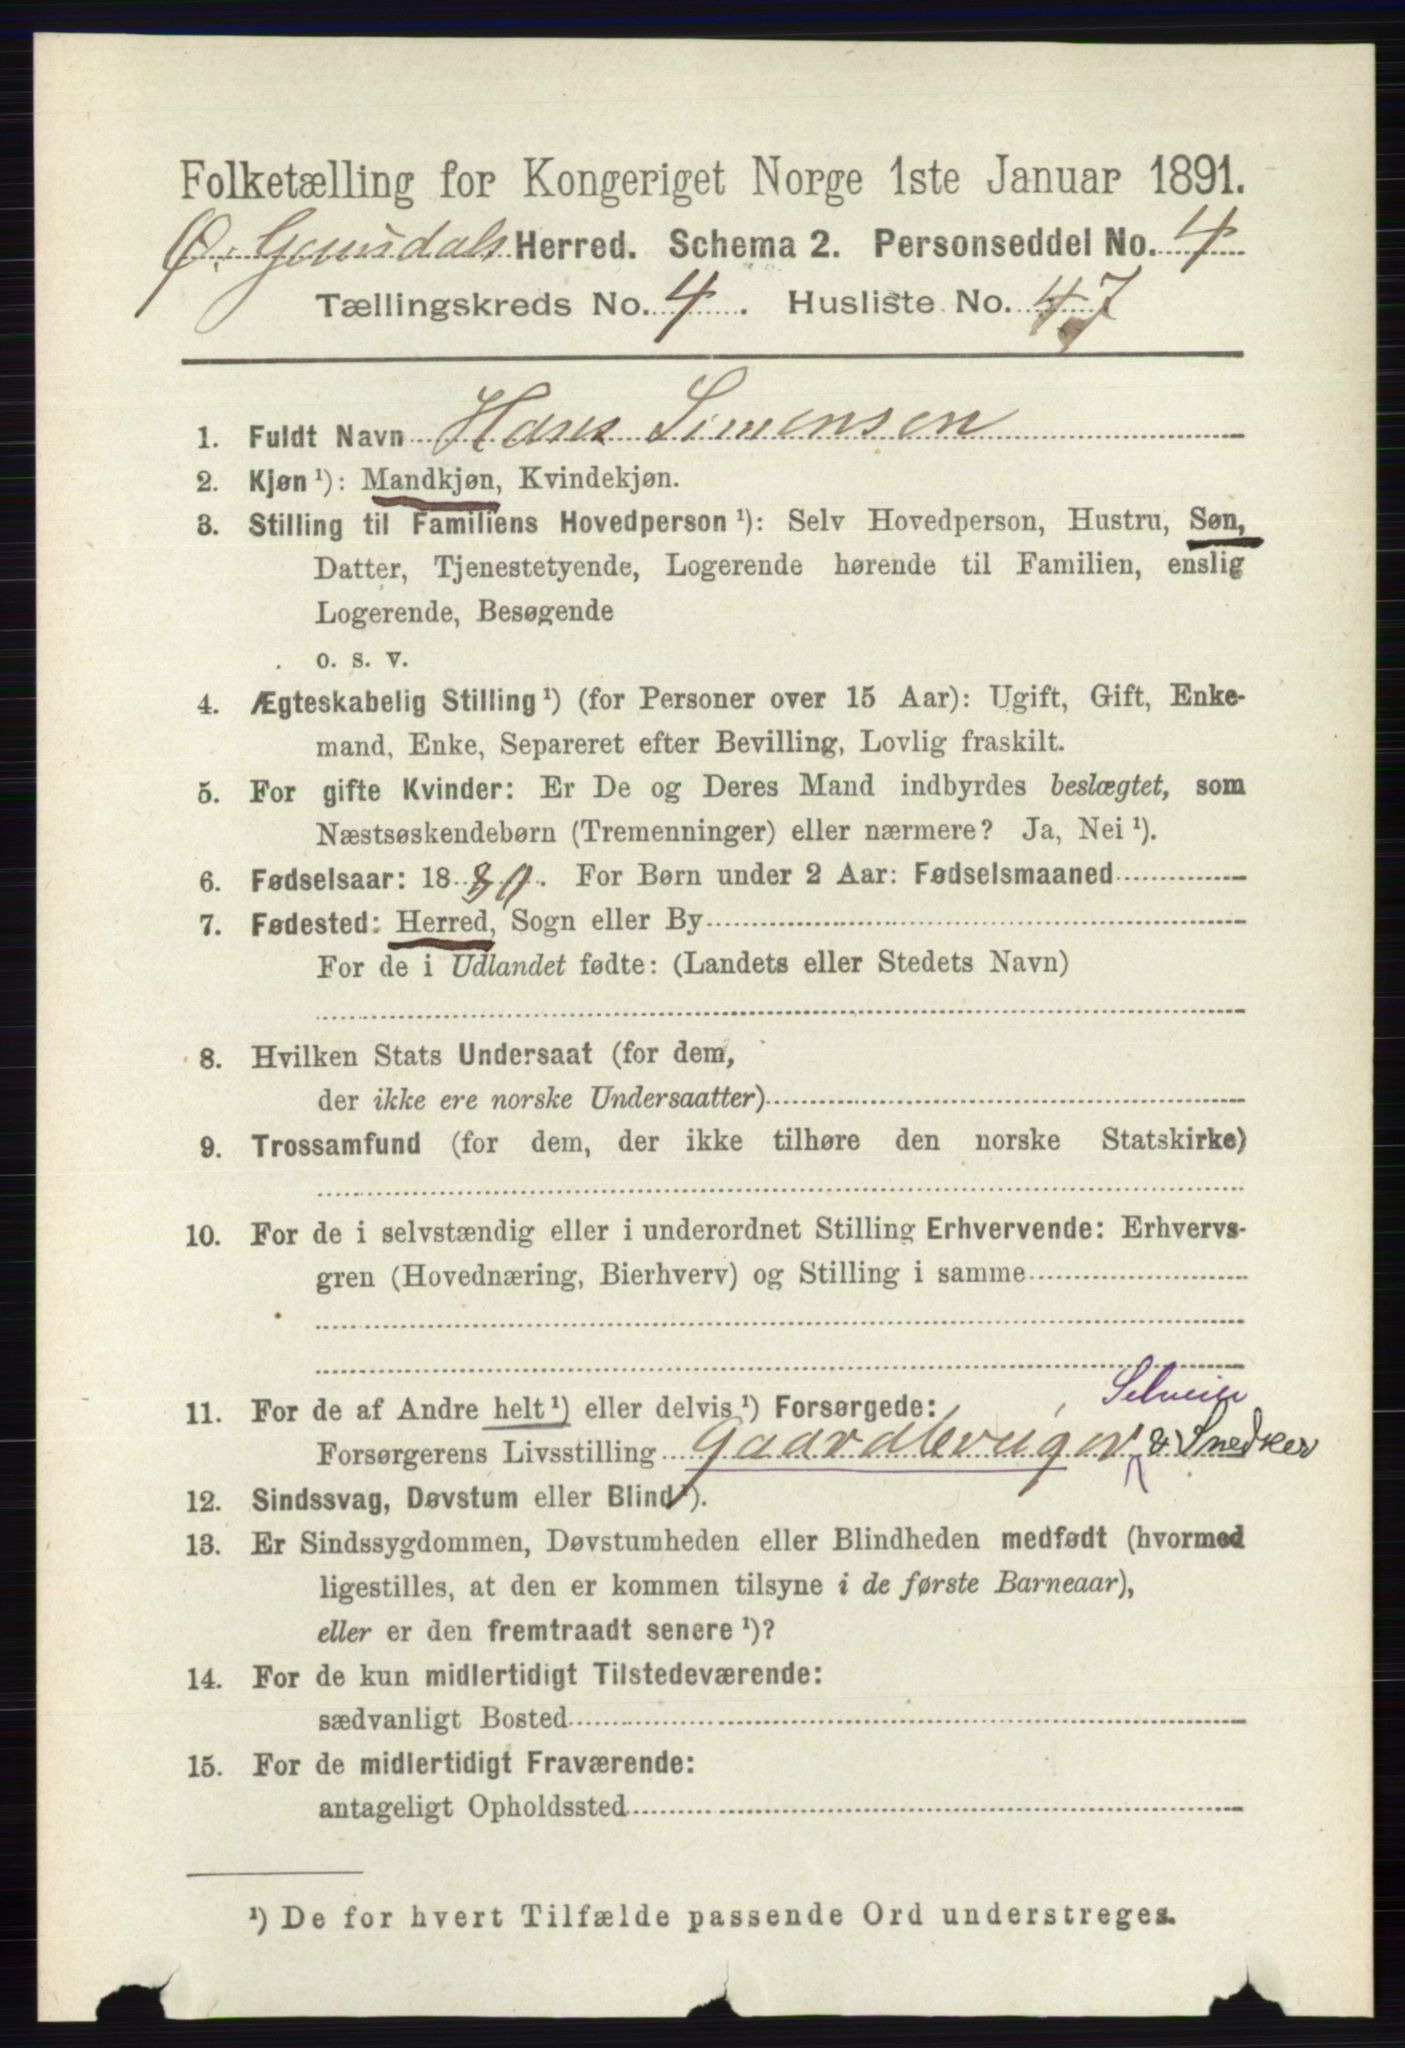 Folketælling for Kongeriget Norge 1ste Januar 1891.
Ø. Gausdals Herred. Schema 2. Personseddel No. 4
Tællingskreds No. 4. Husliste No. 47
1. Fuldt Navn Hans Simensen
2. Kjøn ¹): Mandkjøn, Kvindekjøn.
3. Stilling til Familiens Hovedperson ¹): Selv Hovedperson, Hustru, Søn,
Datter, Tjenestetyende, Logerende hørende til Familien, enslig
Logerende, Besøgende
o. s. v.
4. Ægteskabelig Stilling ¹) (for Personer over 15 Aar): Ugift, Gift, Enke-
mand, Enke, Separeret efter Bevilling, Lovlig fraskilt.
5. For gifte Kvinder: Er De og Deres Mand indbyrdes beslægtet, som
Næstsøskendebørn (Tremenninger) eller nærmere? Ja, Nei ¹).
6. Fødselsaar: 1880. For Børn under 2 Aar: Fødselsmaaned
7. Fødested: Herred, Sogn eller By
For de i Udlandet fødte: (Landets eller Stedets Navn)
8. Hvilken Stats Undersaat (for dem,
der ikke ere norske Undersaatter)
9. Trossamfund (for dem, der ikke tilhøre den norske Statskirke)
10. For de i selvstændig eller i underordnet Stilling Erhvervende: Erhvervs-
gren (Hovednæring, Bierhverv) og Stilling i samme
11. For de af Andre helt ¹) eller delvis ¹) Forsørgede: Selveier
Forsørgerens Livsstilling Gaardbruger & Snedker
12. Sindssvag, Døvstum eller Blind ¹).
13. Er Sindssygdommen, Døvstumheden eller Blindheden medfødt (hvormed
ligestilles, at den er kommen tilsyne i de første Barneaar),
eller er den fremtraadt senere ¹)?
14. For de kun midlertidigt Tilstedeværende:
sædvanligt Bosted
15. For de midlertidigt Fraværende:
antageligt Opholdssted
¹) De for hvert Tilfælde passende Ord understreges.